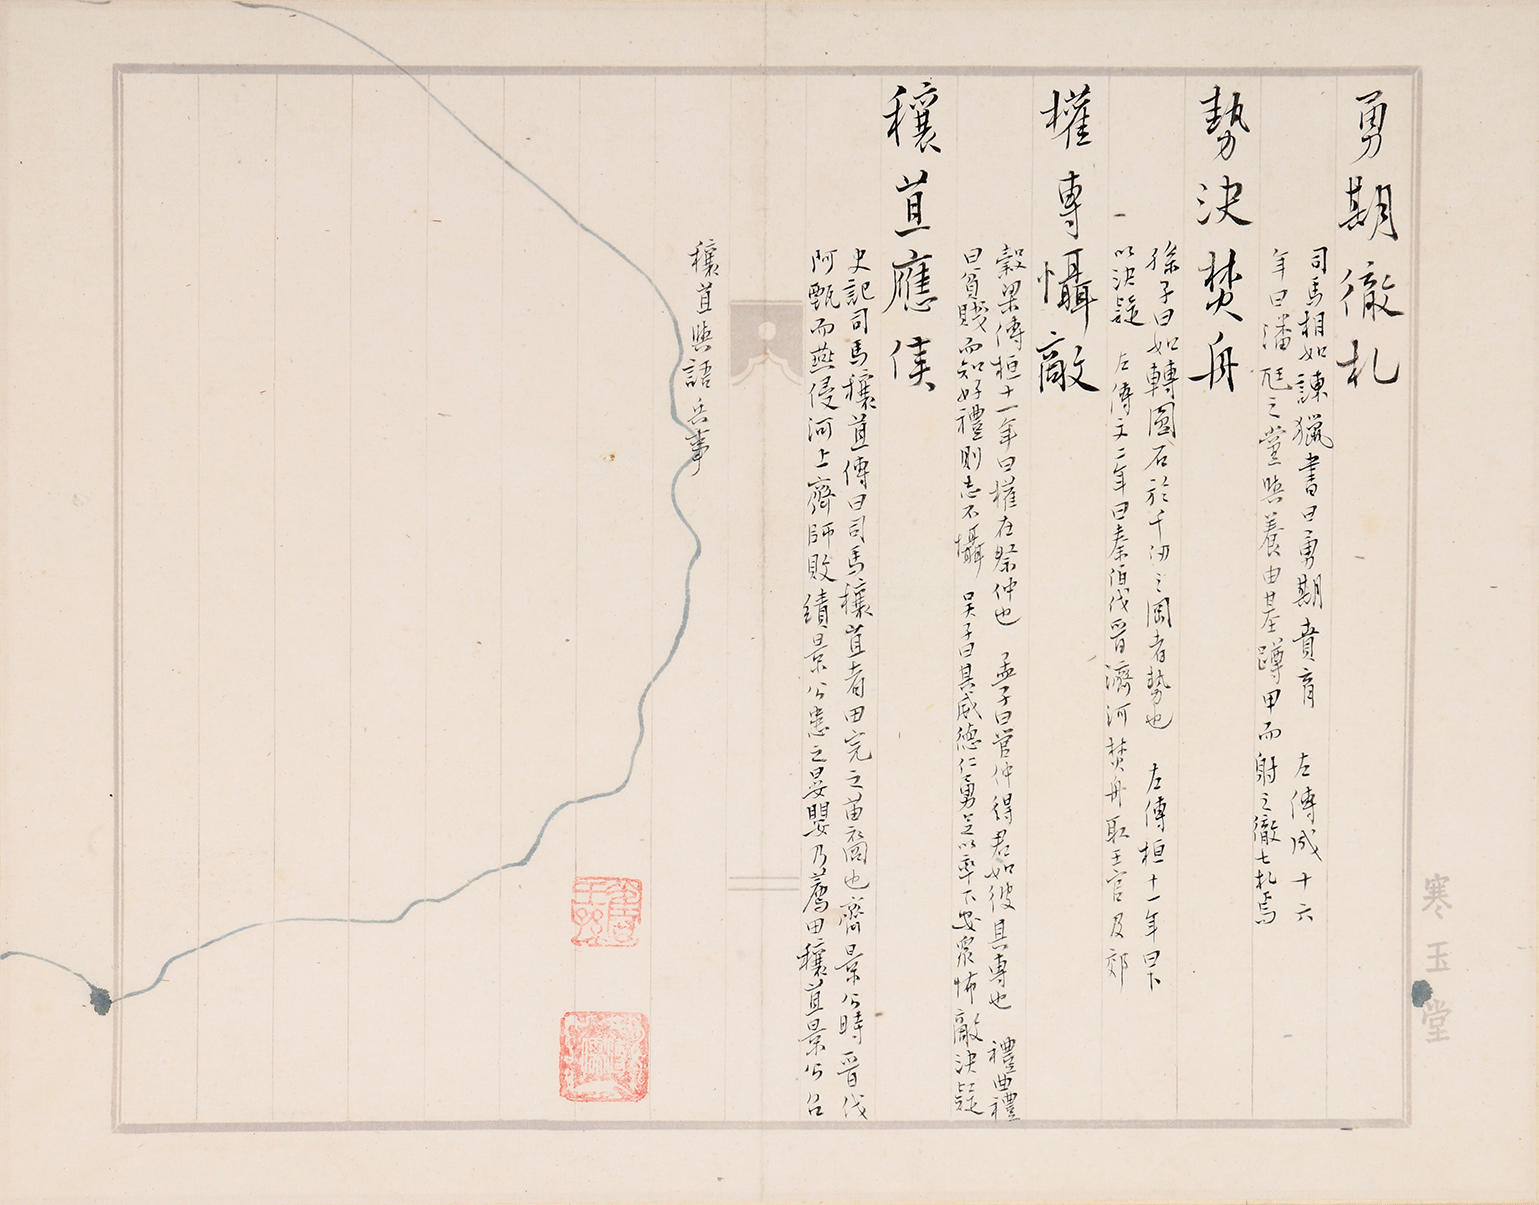 勇期徹札
司馬相如諫獵書曰勇期賁育　左傳成十六
年曰潘尫之黨與養由基蹲甲而射之徹七札焉
勢決焚舟
孫子曰如轉圓石於千仞之岡者勢也　左傳桓十一年曰卜
以決疑　左傳文二年曰秦伯伐晉濟河焚舟取王官及郊
權專懾敵
穀梁傳桓十一年曰權在祭仲也　孟子曰管仲得君如彼其專也　禮曲禮
曰貧賤而知好禮則志不懾　吴子曰其威德仁勇足以率下安眾怖敵決疑
穰苴應侯
史記司馬穰苴傳曰司馬穰苴者田完之苗裔也齊景公時晉伐
阿甄而燕侵河上齊師敗績景公患之晏嬰乃薦田穰苴景公召
穰苴與語兵事
寒玉堂